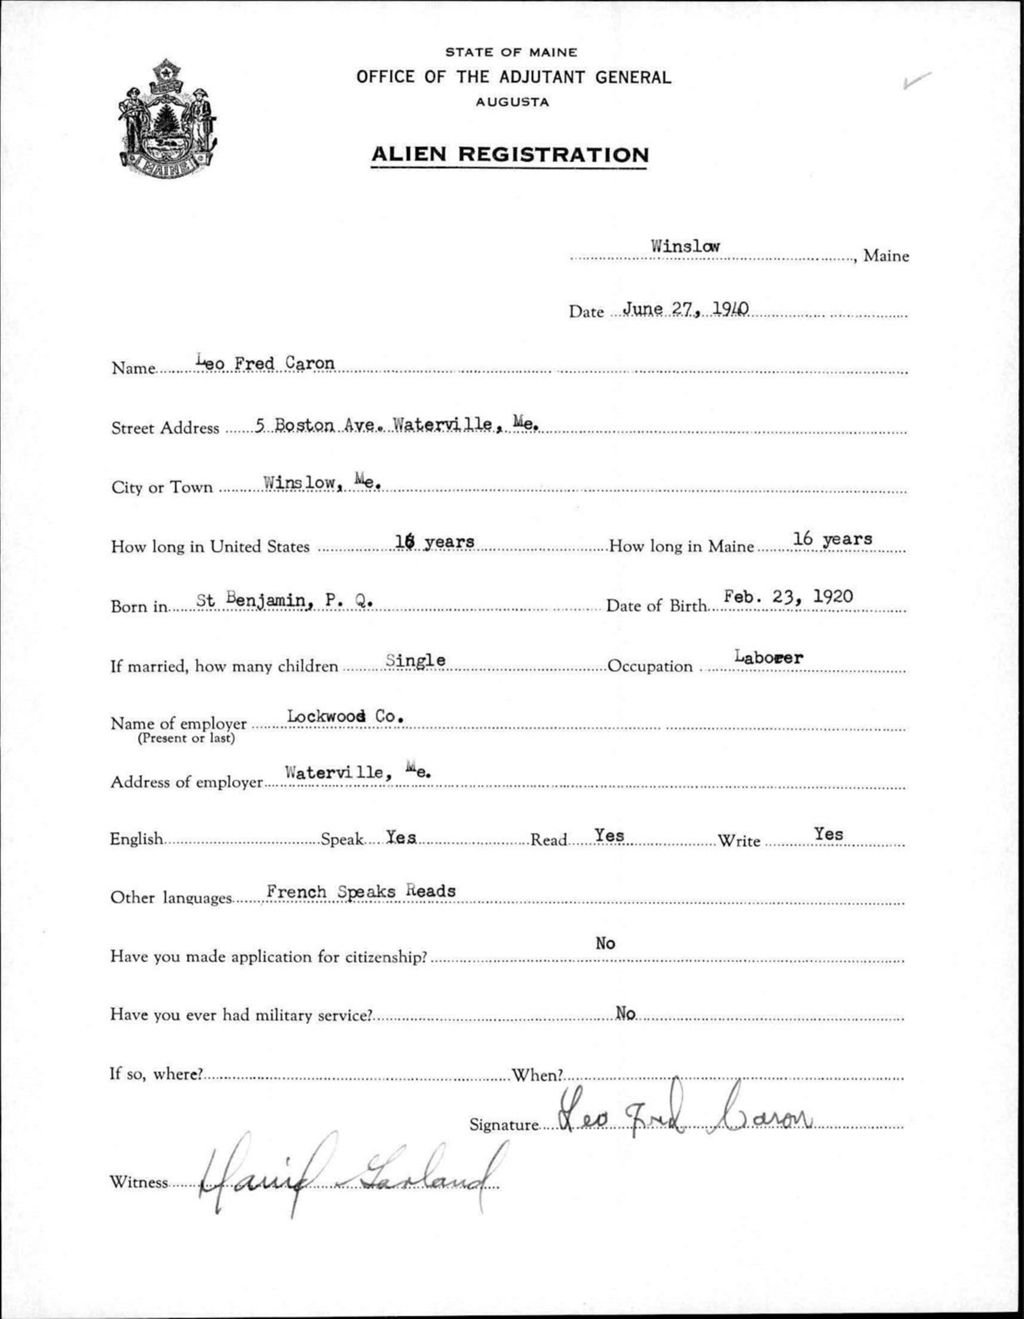 STATE OF MAINE
OFFICE OF THE ADJUTANT GENERAL
AUGUSTA
ALIEN REGISTRATION
MAINE
Winslow, Maine
Date June 27, 1940
Name Leo Fred Caron
Street Address 5 Boston Ave. Waterville, Me.
City or Town Winslow, Me.
How long in United States 16 years How long in Maine 16 years
Born in St Benjamin, P. Q. Date of Birth Feb. 23, 1920
If married, how many children Single Occupation Laborer
Name of employer Lockwood Co.
(Present or last)
Address of employer Waterville, Me.
English Speak Yes Read Yes Write Yes
Other languages French Speaks Reads
Have you made application for citizenship? No
Have you ever had military service? No
If so, where? When?
Signature Leo Fred Caron
Witness David Garland